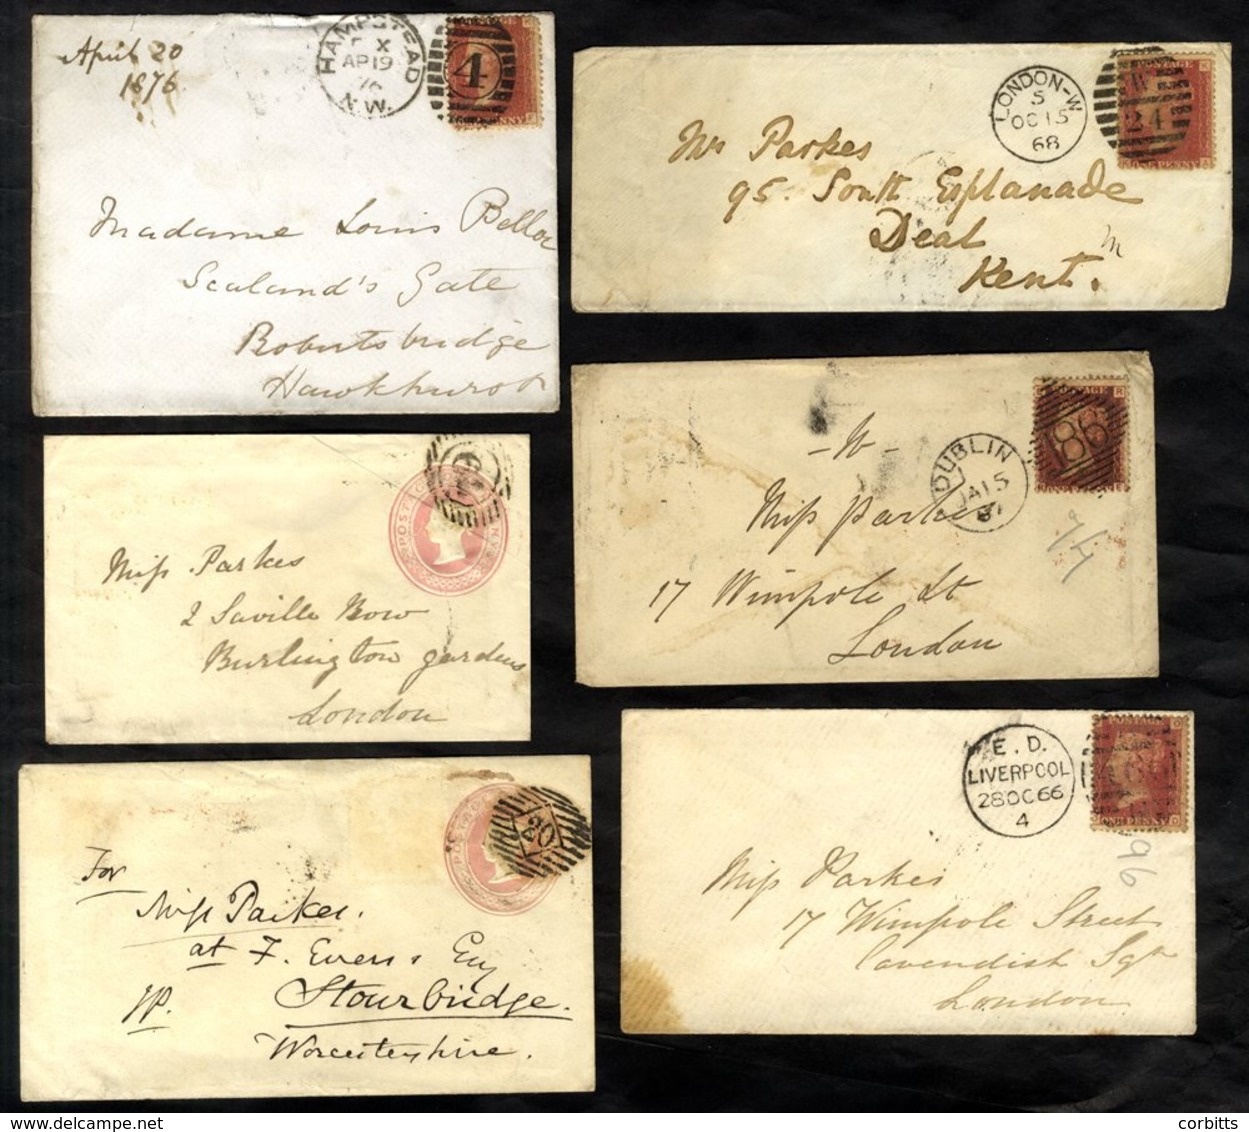 April 20
1876
HAMPSTEAD
X
AP 19
76
N.W.
4
Madame Louis Belloc
Scaland's Gate
Robertsbridge
Hawkhurst
LONDON-W
5
OC 15
68
W
24
POSTAGE
ONE PENNY
Mrs Parkes
95. South Esplanade
Deal
Kent.
DUBLIN
JA 15
67
186
Miss Parkes
17 Wimpole St
London
Miss Parkes
2 Saville Row
Burlington gardens
London
E. D.
LIVERPOOL
28 OC 66
4
POSTAGE
ONE PENNY
96
Miss Parkes
17 Wimpole Street
Cavendish Sqr
London
20
For
Miss Parkes.
at F. Evers Esq
Stourbridge.
Worcestershire.
corbitts